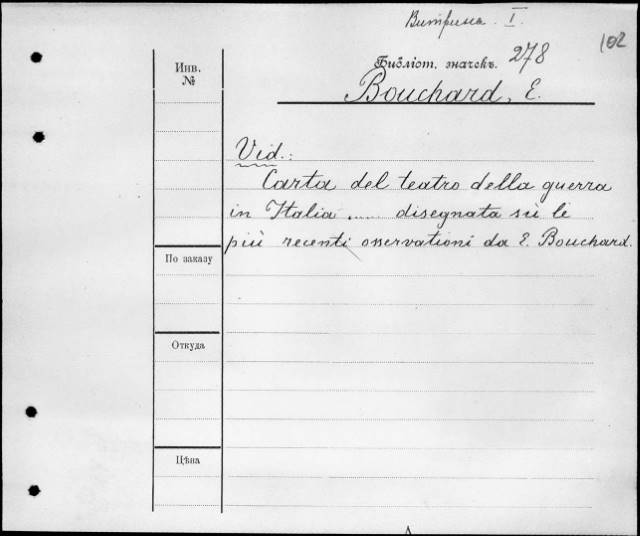 Витрина I.
102
Инв. №
Библіот. значекъ. 278
Bouchard, E.
Vid.:
Carta del teatro della guerra
in Italia ...... disegnata sù le
più recenti osservationi da E. Bouchard.
По заказу
Откуда
Цѣна